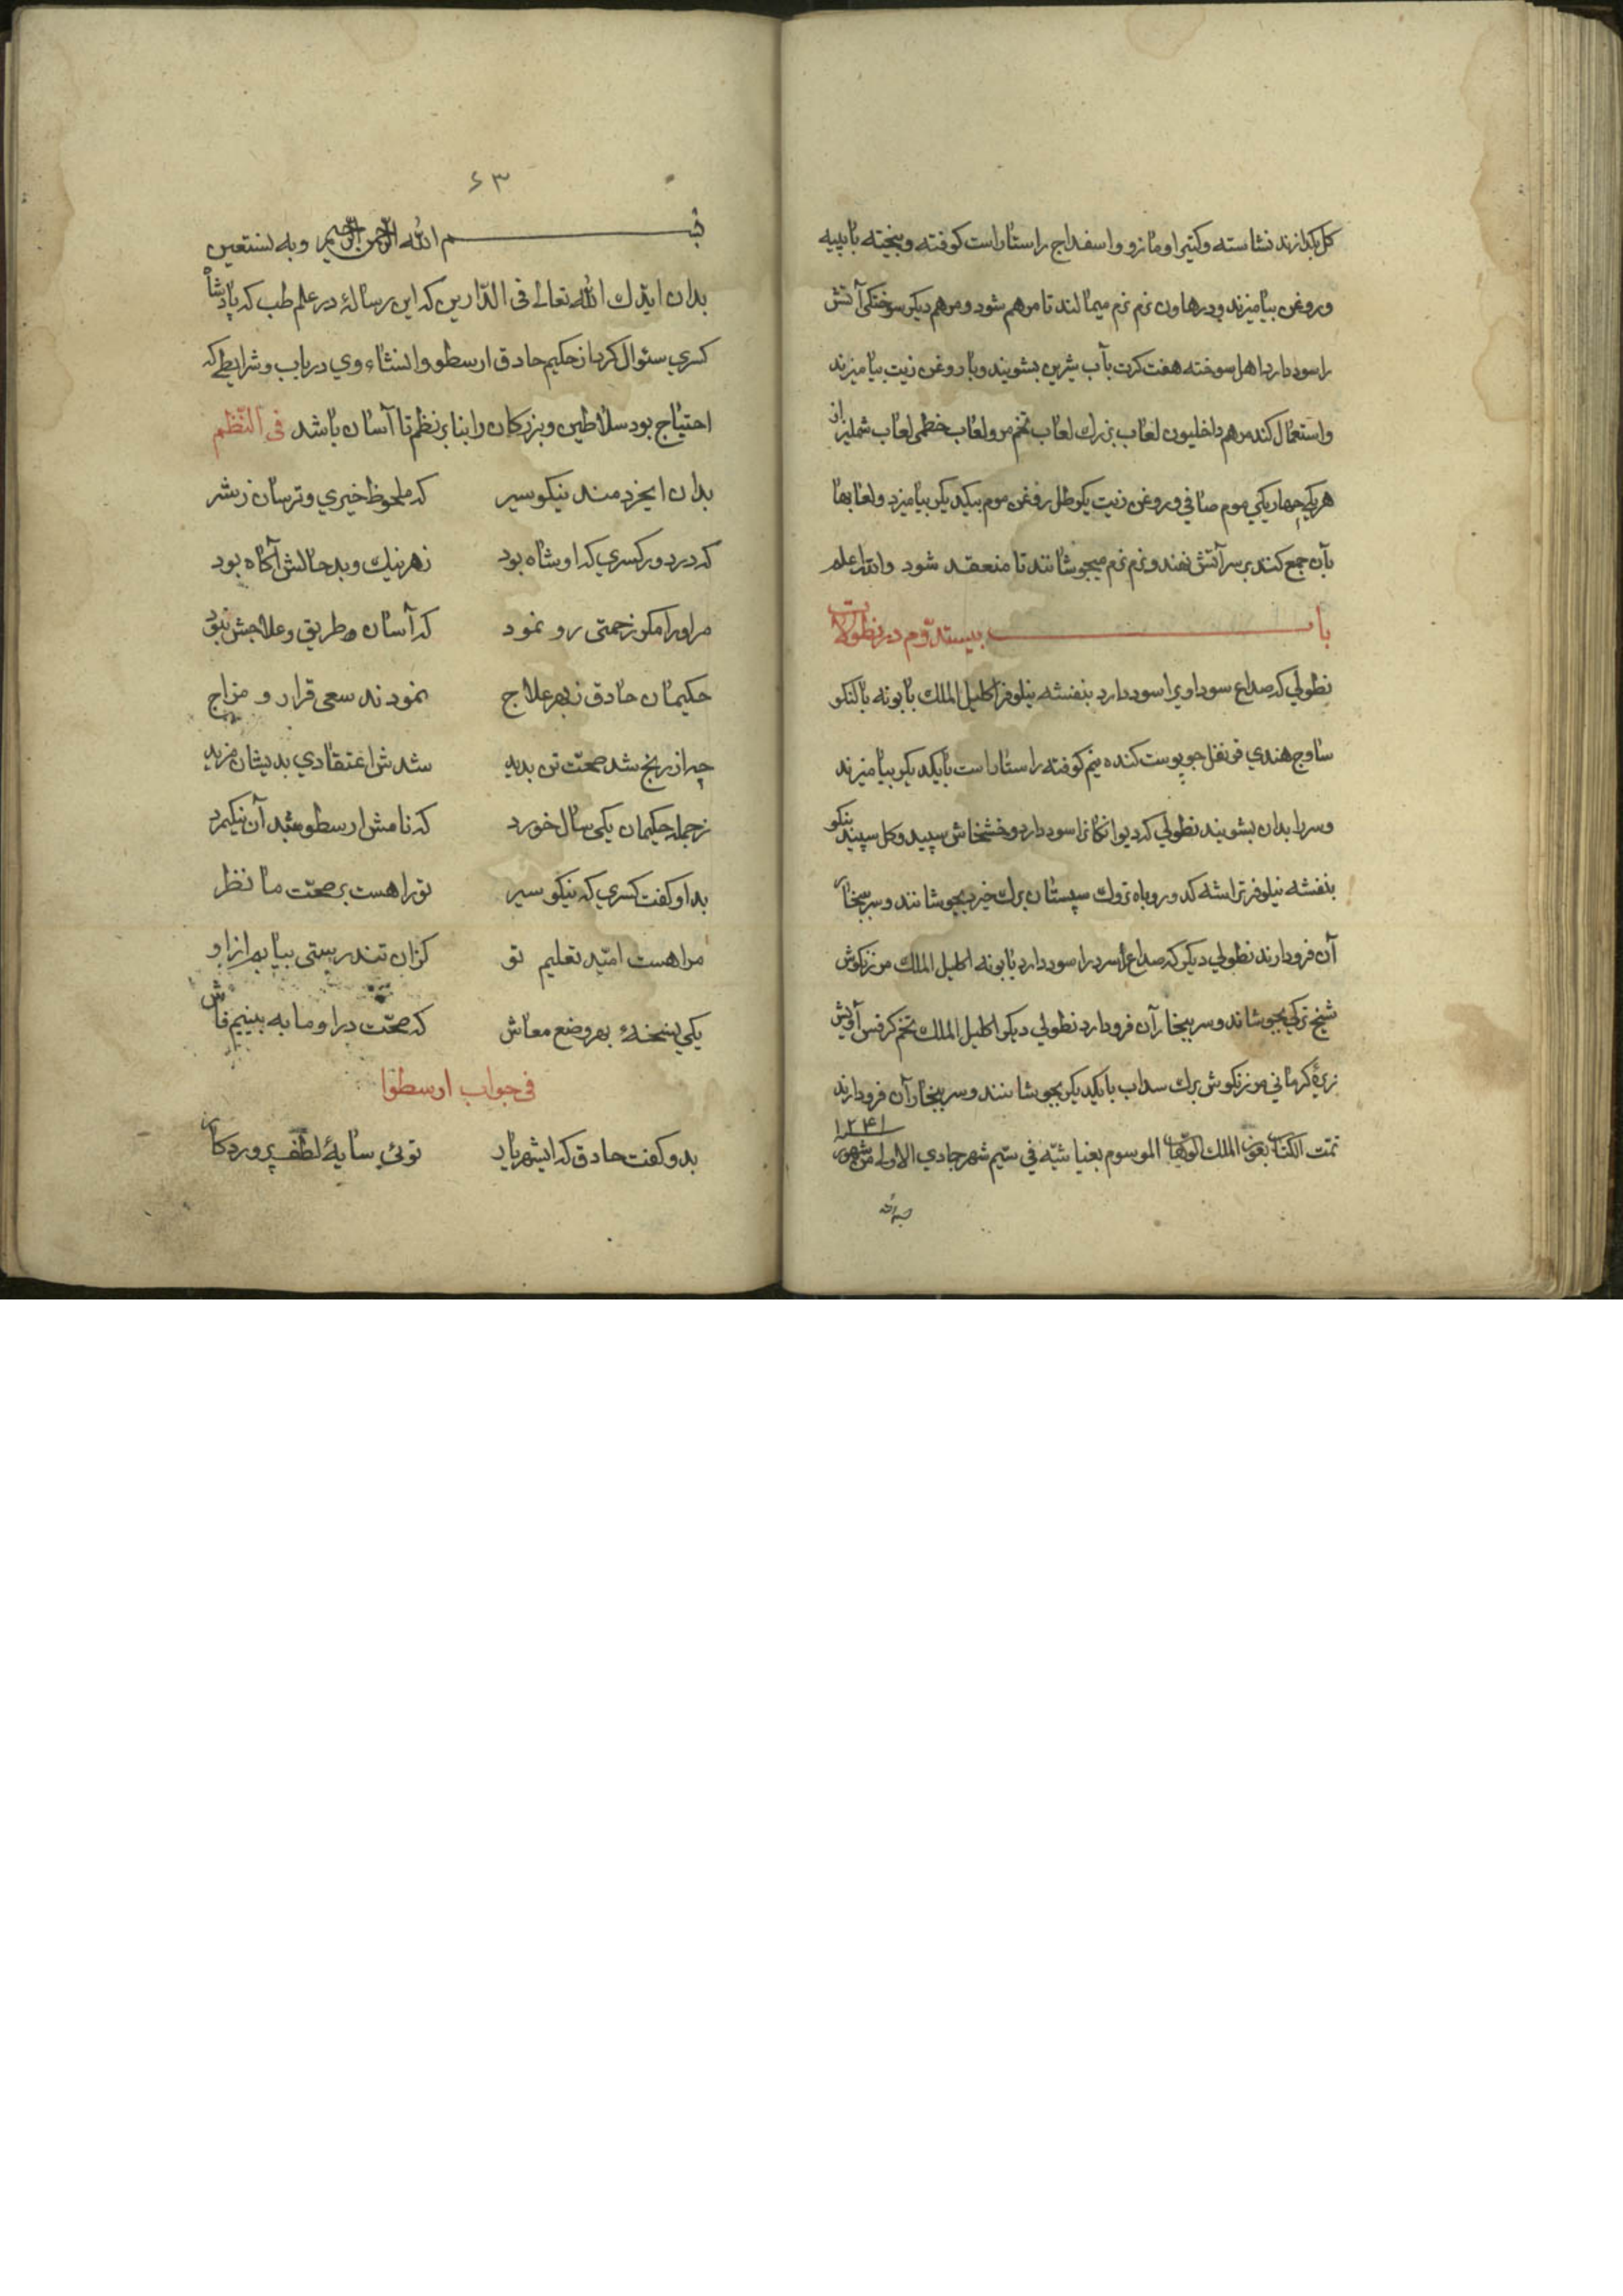 کل بکدازند نشاسته وکتیرا ومازو واسفداج راستاراست کوفته وبیخته بابیه
وروغن بیامیزند ودرهاون نرم نرم میمالند تا مرهم شود ومرهم دیکر سوختکی آتش
راسود دارد اهل سوخته هفت کرت بآب شیرین بشویند وبا روغن زیت بیامیزند
واستعمال کند مرهم داخلیون لعاب بزرك لعاب تخم مرو لعاب خطمی لعاب شملیز از
هریکی چهاریکی موم صافی وروغن زیت یکرطل روغن موم بیکدیکر بیامیزد ولعابها
بآن جمع کند برسر آتش نهند ونرم نرم میجوشانند تا منعقد شود والله اعلم
باب بیستدوم در نطولات
نطولی که صداع سوداویرا سود دارد بنفشه نیلوفر اکلیل الملك بابونه بالنکو
ساوج هندی قرنفل جوپوست کنده نیم کوفته راستاراست بایکدیکر بیامیزند
وسررا بدان بشویند نطولی که دیوانکانرا سود دارد وخشخاش سپید وکل سپید نیکو
بنفشه نیلوفر تراشه کدو روباه تروك سپستان برك خیر بجوشانند وسر ببخار
آن فرودارند نطولی دیکر که صداع سردرا سود دارد بابونه اکلیل الملك مرزنکوش
شیح ترکی بجوشاند وسر ببخار آن فرودارد نطولی دیکر اکلیل الملك تخم کرفس آویش
زیرهٔ کرمانی مرزنکوش برك سداب بایکدیکر بجوشانند وسر ببخار آن فرودارند
۱۲۴۱
تمت الکتاب بعون الملك الوهاب الموسوم بغیاثیه فی سیم شهر جمادی الاولی من شهور
۶۳
بسم الله الرحمن الرحیم وبه نستعین
بدان ایدك الله تعالی فی الدارین که این رسالهٔ در علم طب که پادشاه
کسری سئوال کرد از حکیم حادق ارسطو وانشاء وی در باب وشرایطی که
احتیاج بود سلاطین وبزرکان را بنا بر نظم تا آسان باشد فی النظم
بدان ایخردمند نیکو سیر که ملحوظ خیری وترسان زشر
که در دور کسری که او شاه بود زهر نیك وبد حالش آکاه بود
مراورا مکر زحمتی رو نمود که آسان طریق وعلاجش نبود
حکیمان حادق زبهر علاج نمودند سعی قرار و مزاج
چو از رنج شد صحت تن بدید شدش اعتقادی بدیشان مزید
زجمله حکیمان یکی سال خورد که نامش ارسطو بد آن نیکمرد
بدو کفت کسری که نیکو سیر تورا هست بر صحت ما نظر
مرا هست امید تعلیم تو کزان تندرستی بیابم ازاو
یکی نسخهٔ بهر وضع معاش که صحت در او ما به بینیم فاش
فی جواب ارسطو
بدو کفت حادق که ایشهریار توئی سایهٔ لطف پروردکار